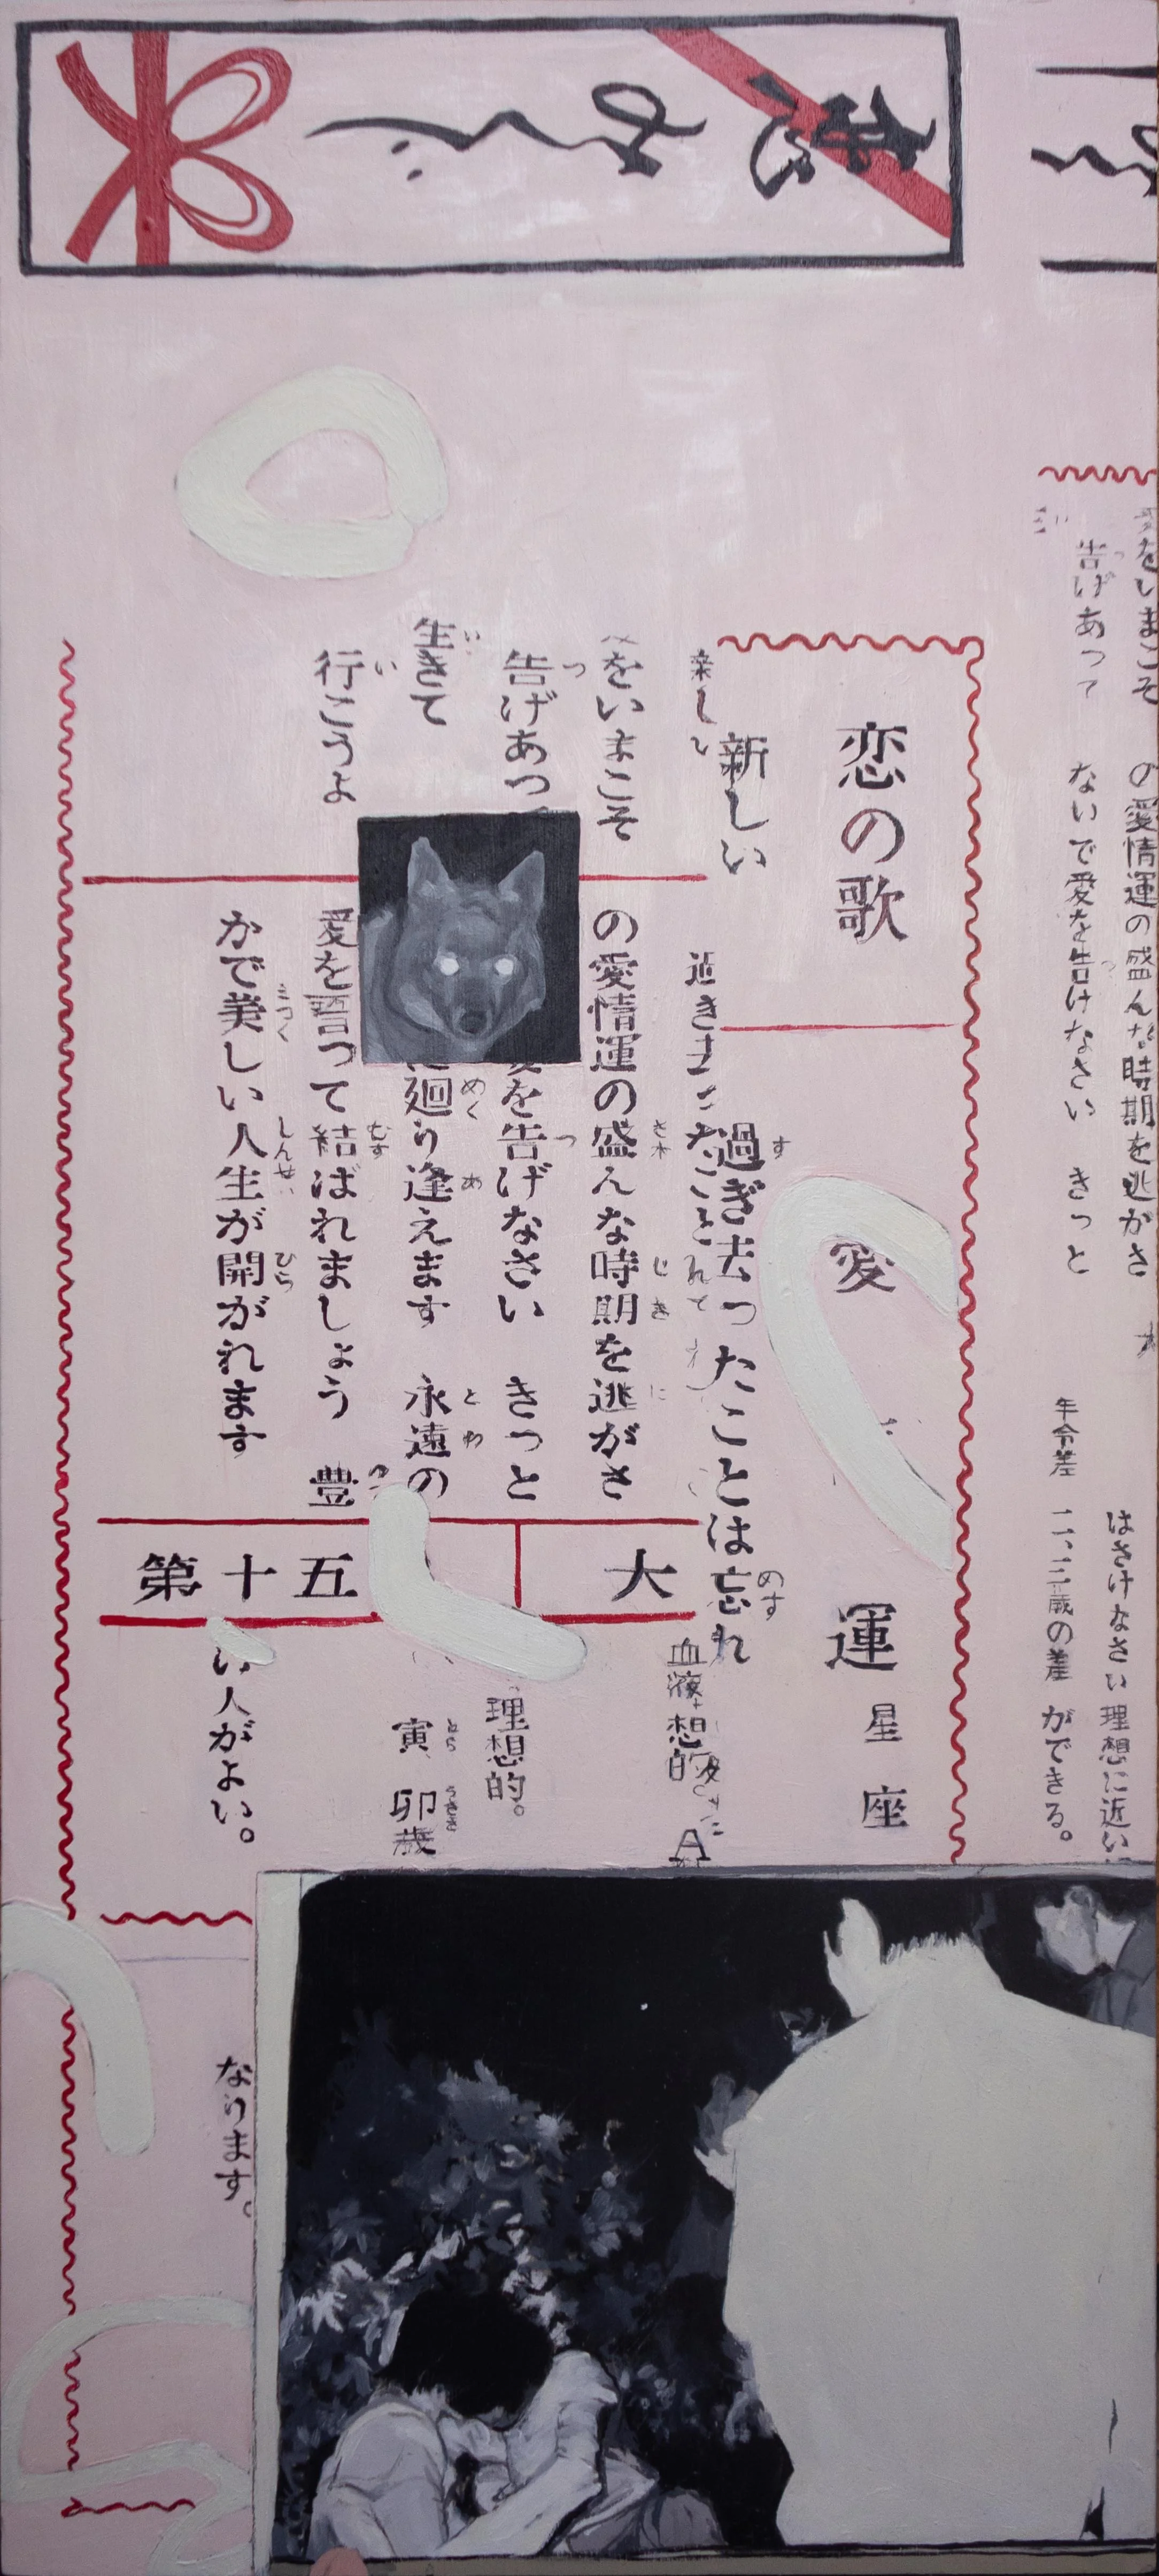 恋みくじ
をいまこそ
告げあって
の愛情運の盛んな時期を逃がさ
ないで愛を告げなさい きっと
はさけなさい 理想に近い
年令差 二、三歳の差 ができる。
恋の歌
新しい
をいまこそ
告げあっ
生きて
行こうよ
愛 運
過ぎ去ったことは忘れ
の愛情運の盛んな時期を逃がさ
を告げなさい きっと
廻り逢えます 永遠の
愛を誓って結ばれましょう 豊
かで美しい人生が開がれます
第十五 大
星座
血液 想的 A
理想的。
寅 卯歳
い人がよい。
なります。